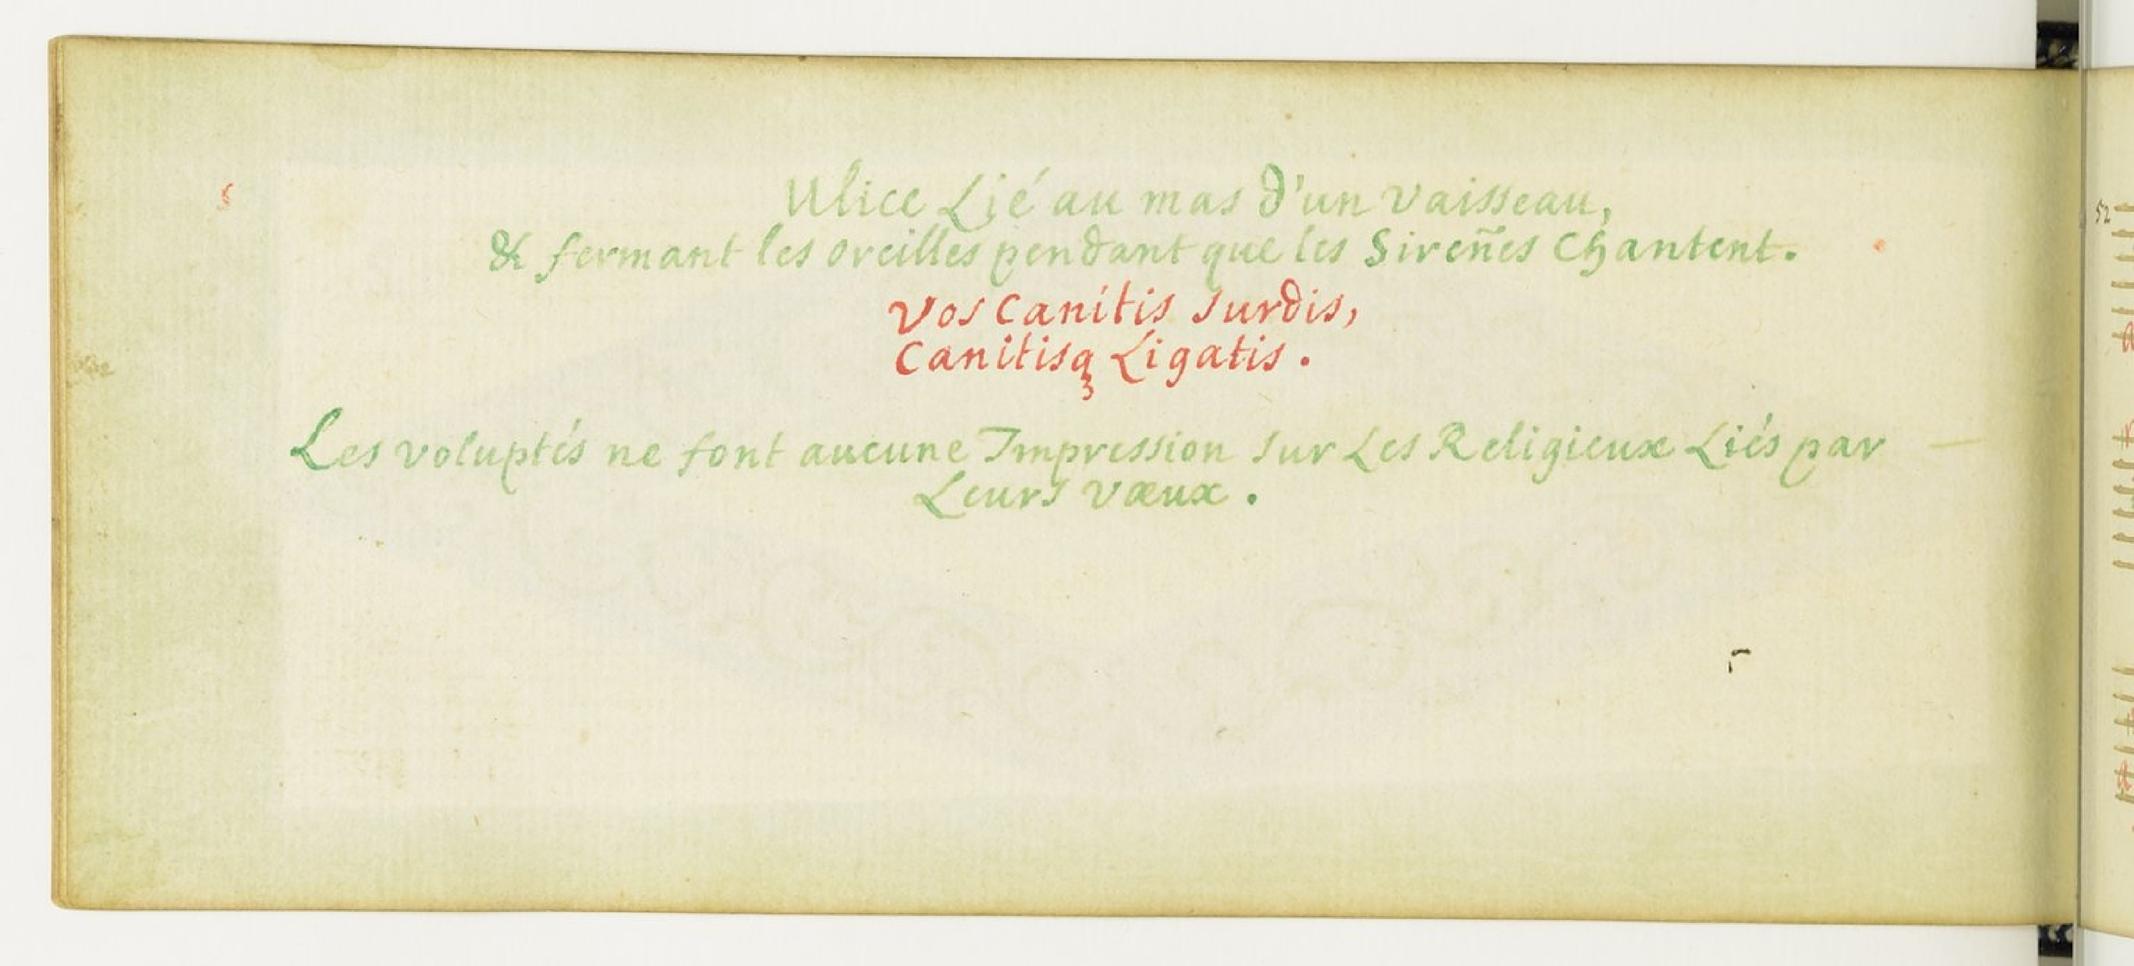 Ulice Lié au mas d'un vaisseau,
& fermant les oreilles pendant que les Sireñes Chantent.
Vos Canitis surdis,
Canitisq3 Ligatis.
Les voluptés ne font aucune Impression sur Les Religieux Liés par
Leurs vœux.
52